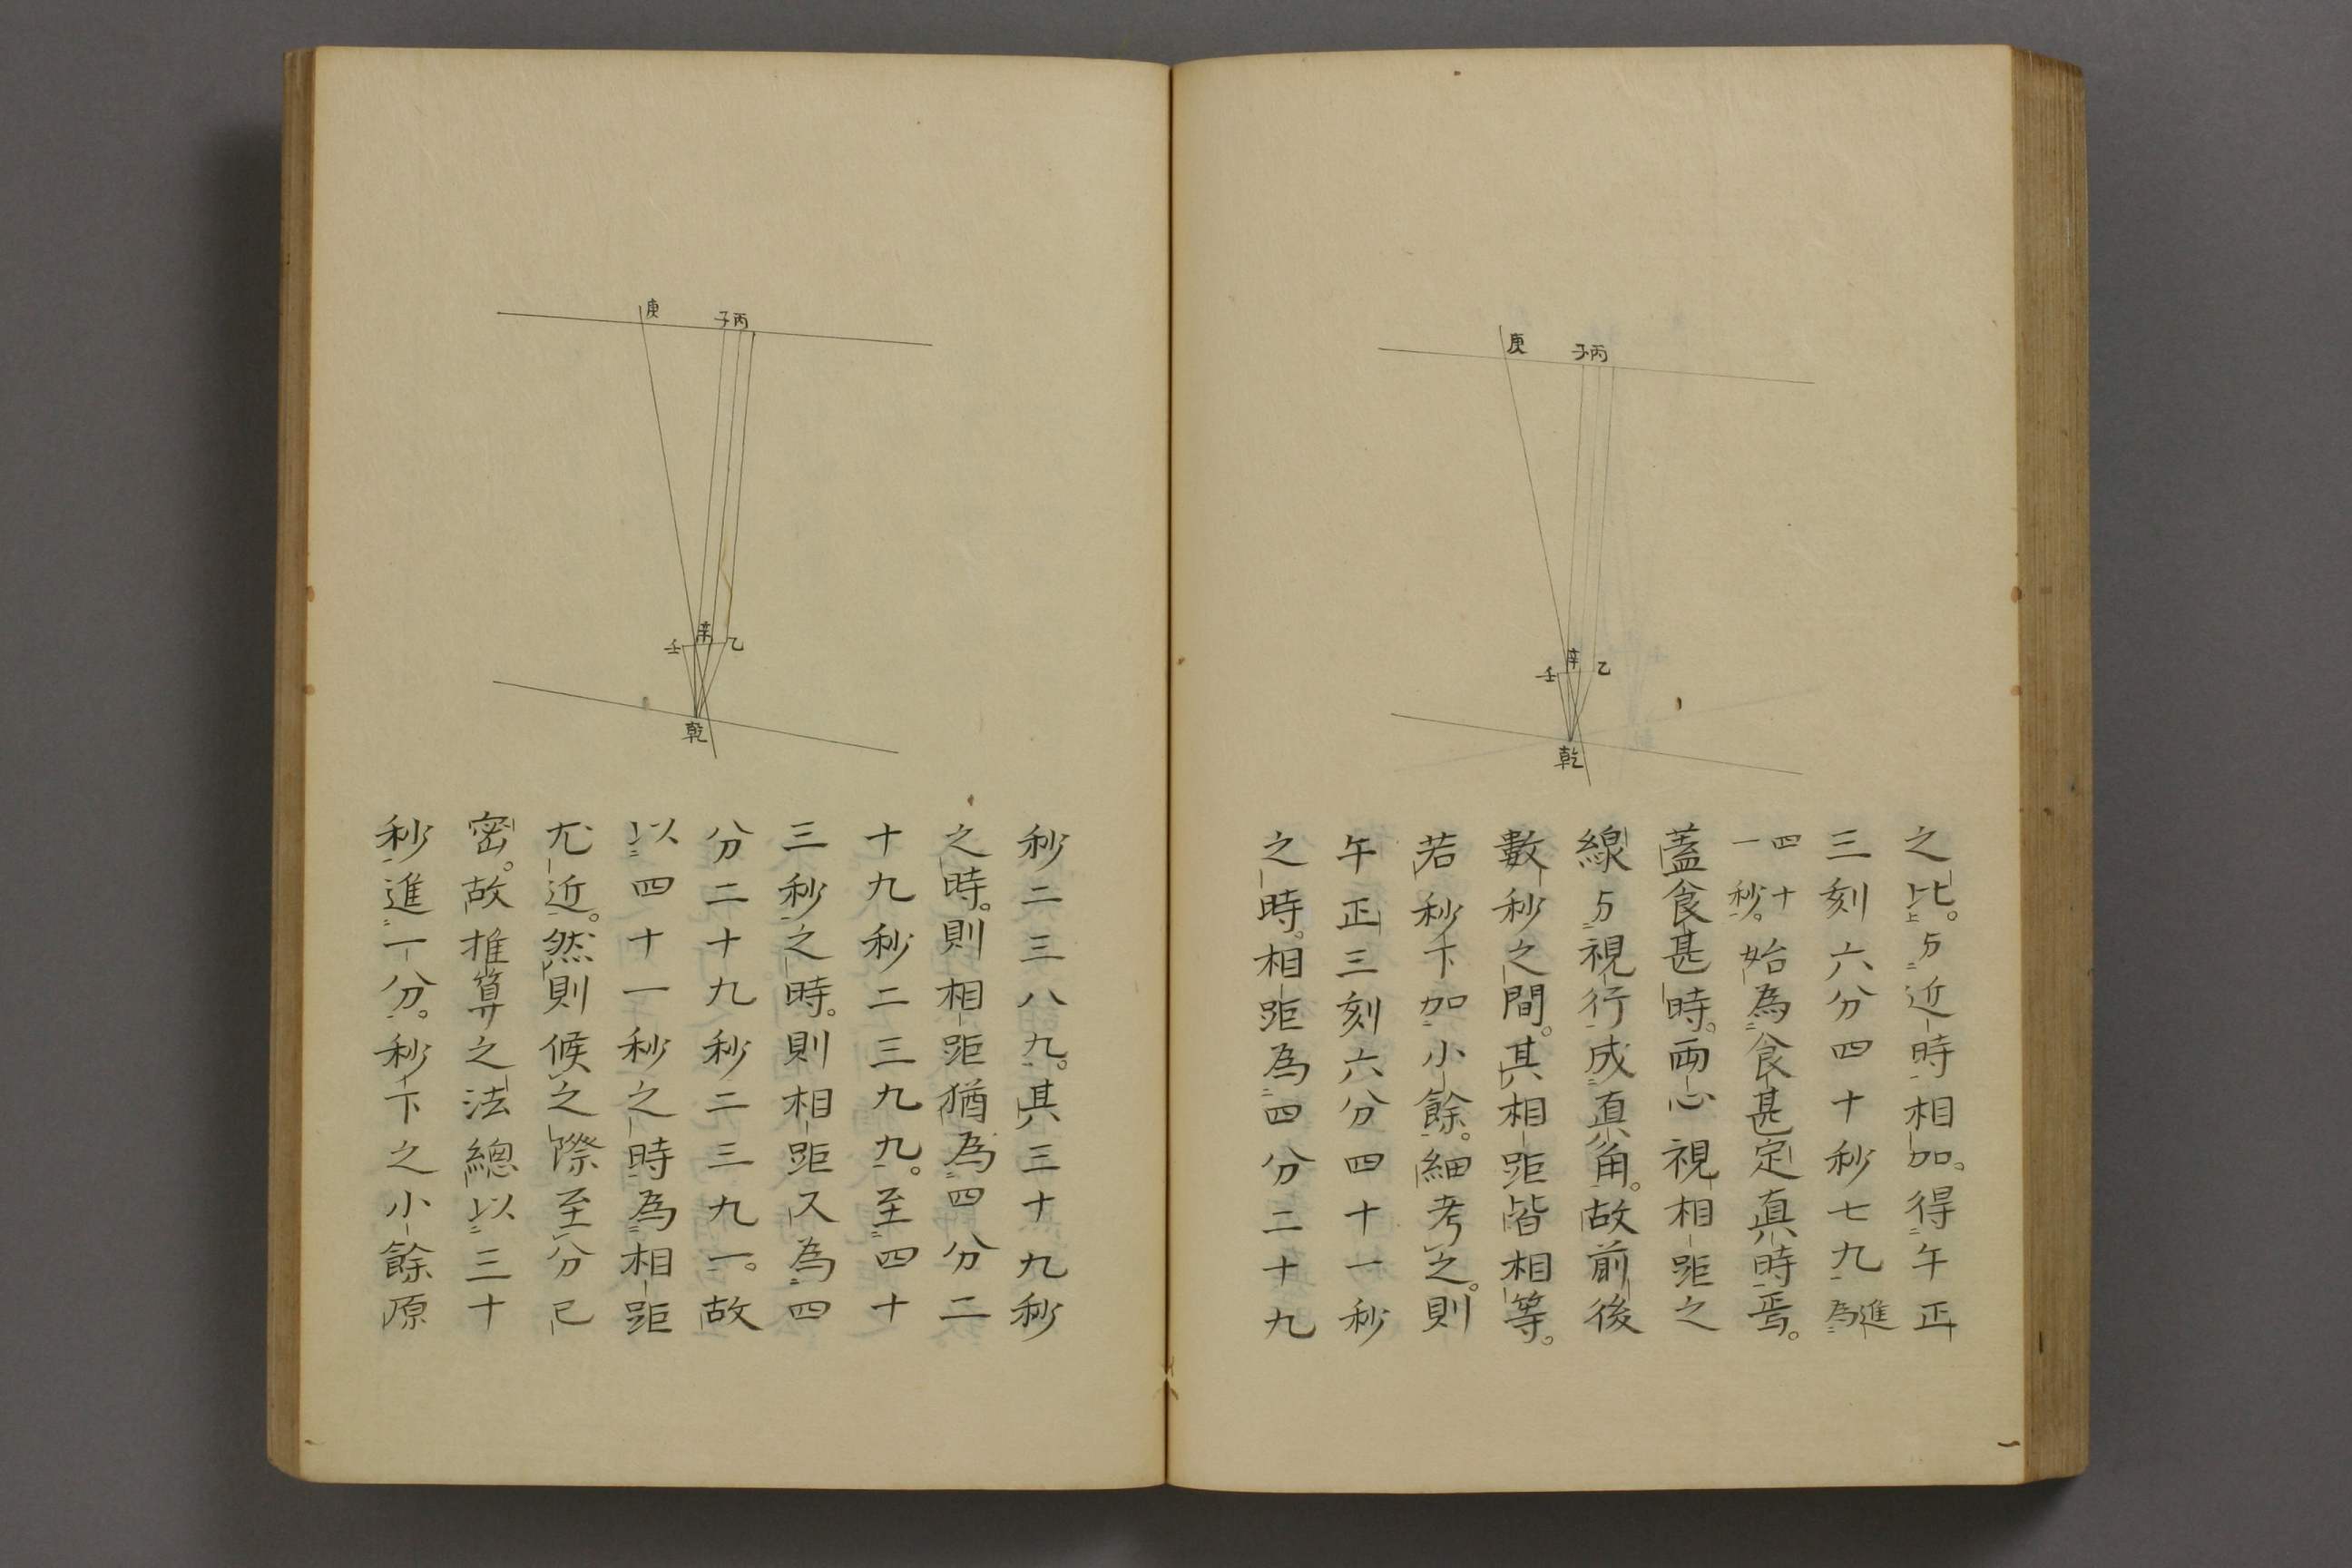 庚
子丙
辛
壬
乙
乾
之比。与近時相加。得午正
三刻六分四十秒七九進為
四十一秒。始為食甚定真時焉。
蓋食甚時。両心視相距之
線与視行成直角。故前後
數秒之間。其相距皆相等。
若秒下加小餘。細考之。則
午正三刻六分四十一秒
之時。相距為四分二十九
庚
子丙
辛
壬
乙
乾
秒二三八九。其三十九秒
之時。則相距猶為四分二
十九秒二三九九。至四十
三秒之時。則相距又為四
分二十九秒二三九一。故
以四十一秒之時為相距
尤近。然則候之際至分已
密。故推算之法總以三十
秒進一分。秒下之小餘原